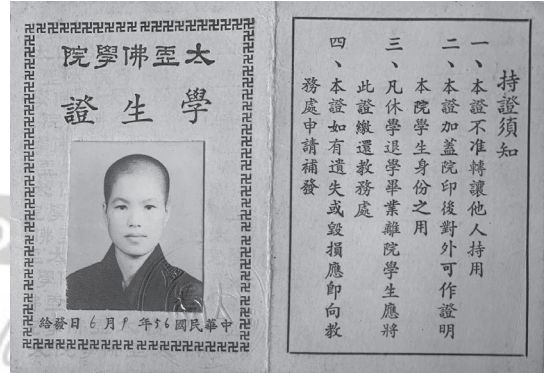 太虛佛學院
學生證
中華民國56年9月6日發給
持證須知
一、本證不准轉讓他人持用
二、本證加蓋院印後對外可作證明
本院學生身份之用
三、凡休學退學畢業離院學生應將
此證繳還教務處
四、本證如有遺失或毀損應即向教
務處申請補發